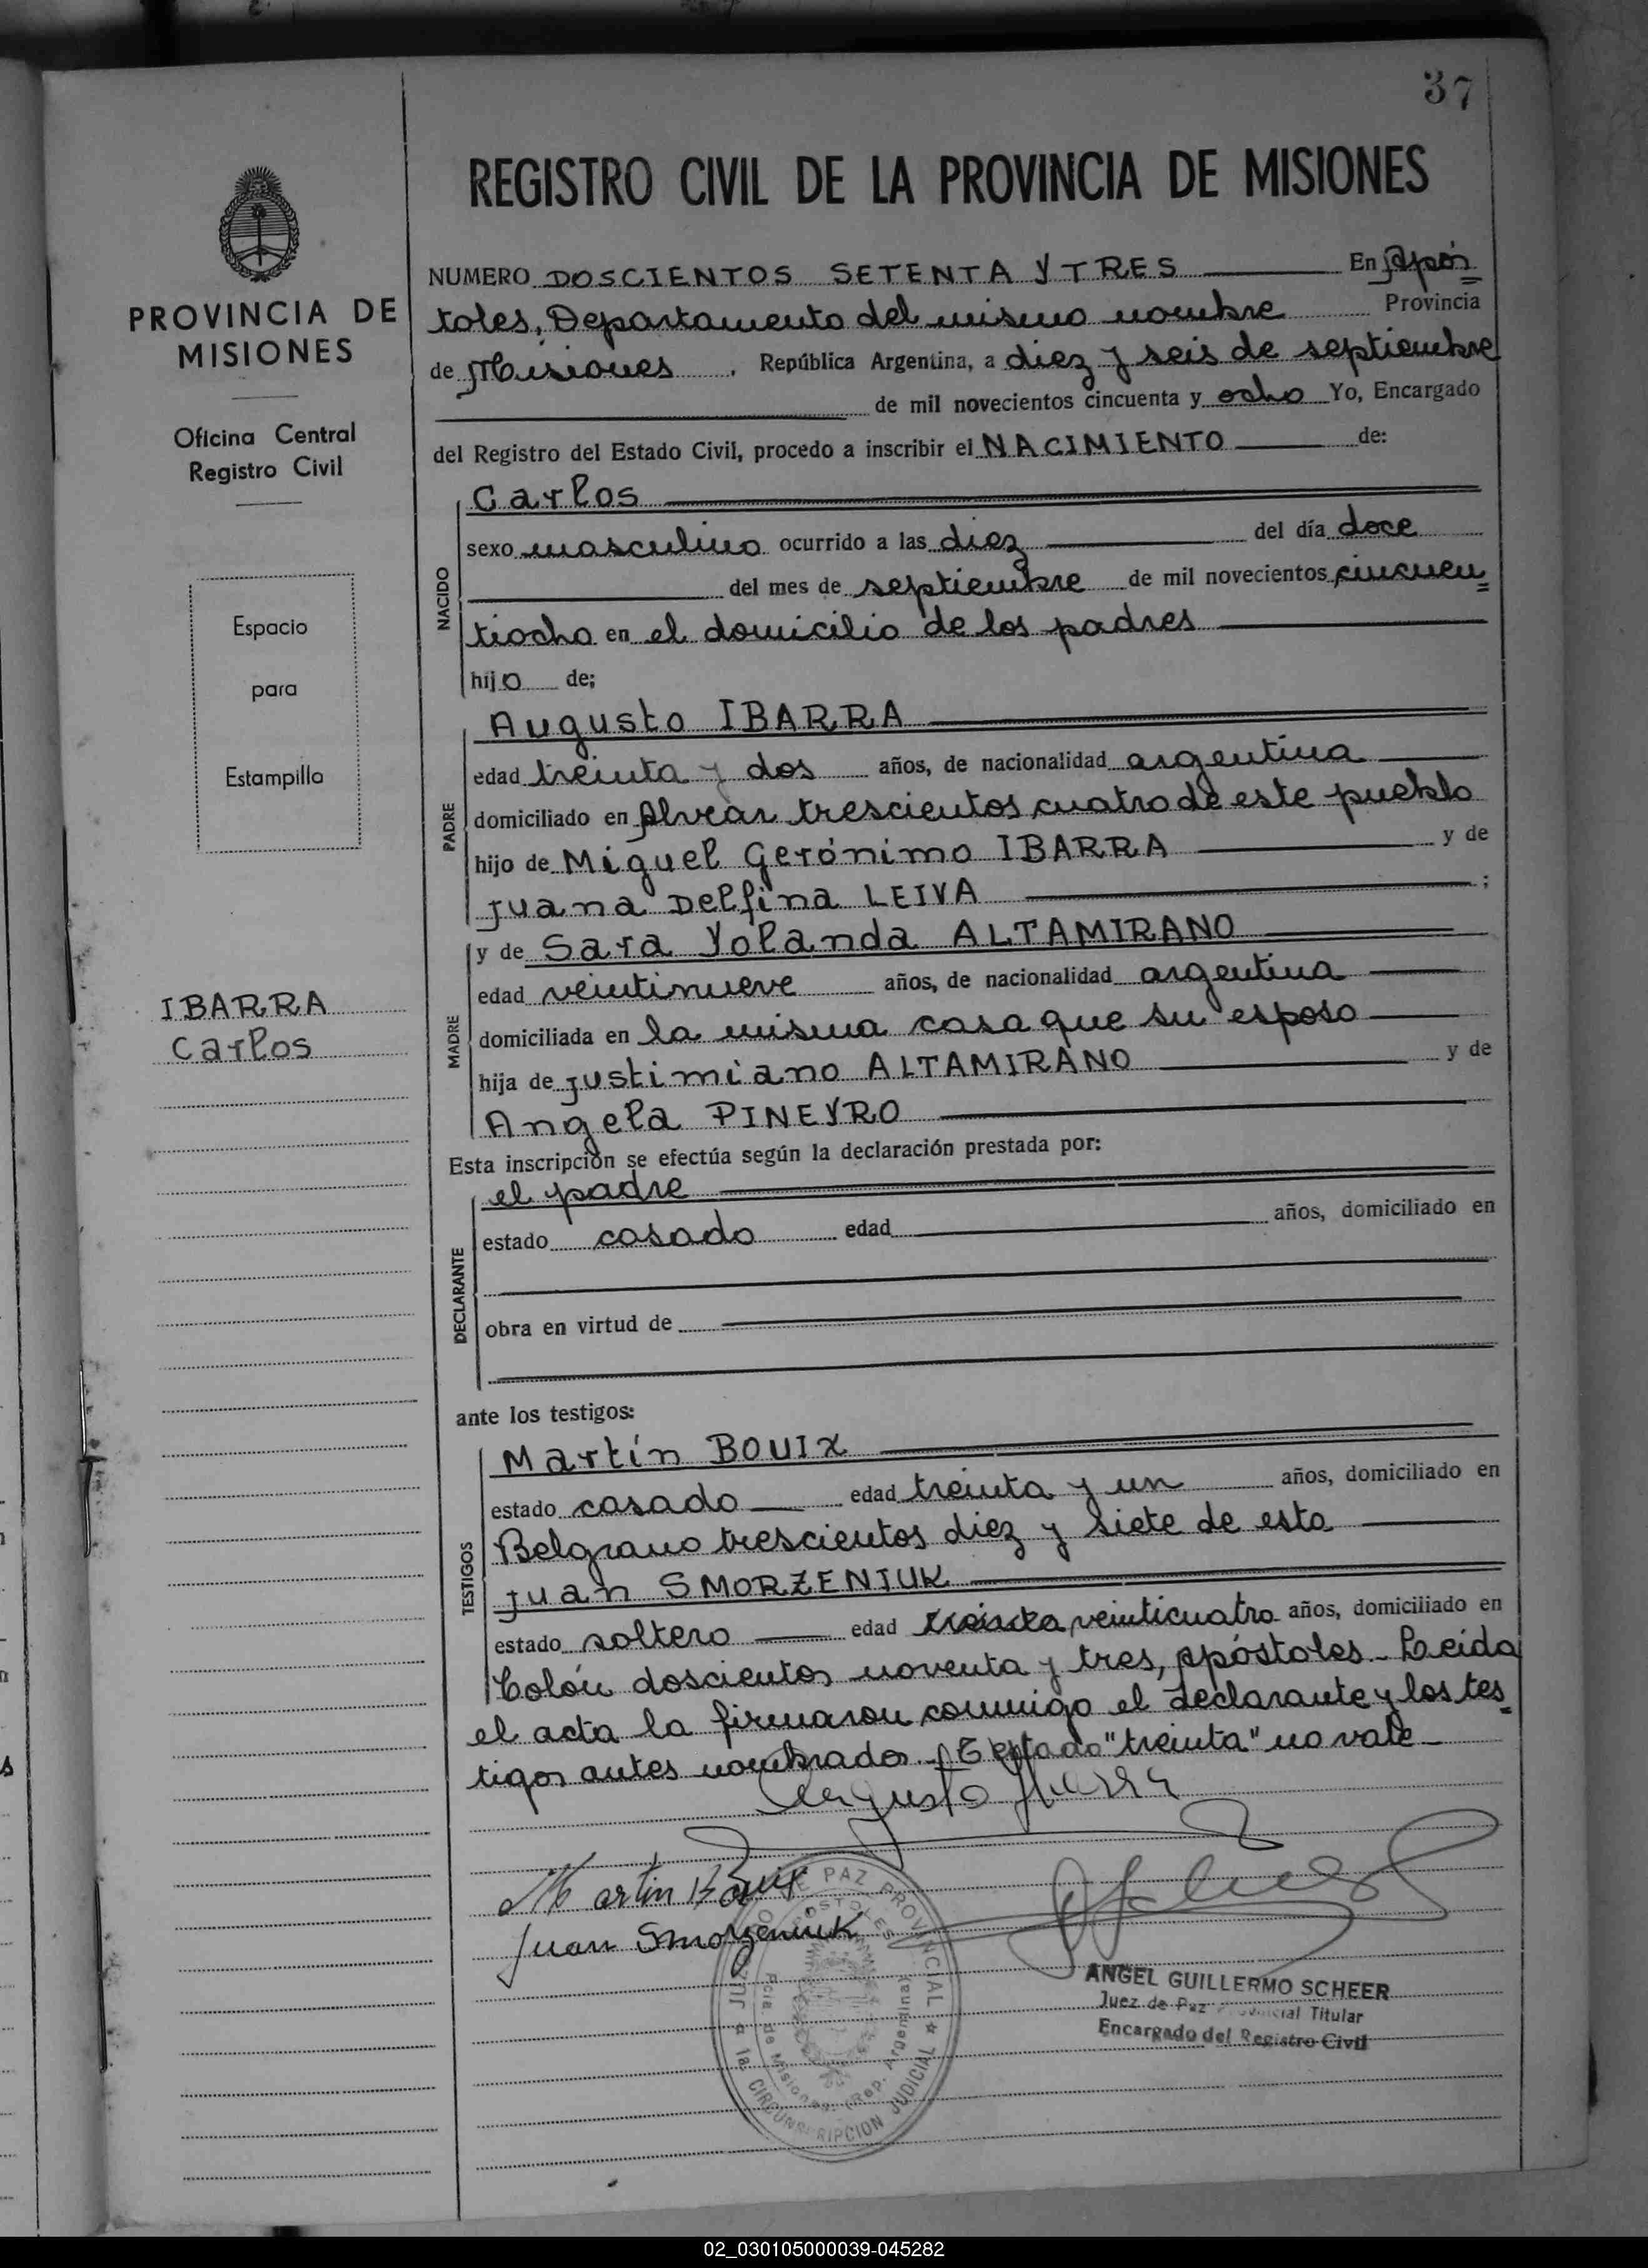 37
REGISTRO CIVIL DE LA PROVINCIA DE MISIONES
PROVINCIA DE
MISIONES
Oficina Central
Registro Civil
Espacio
para
Estampilla
IBARRA
Carlos
NUMERO DOSCIENTOS SETENTA Y TRES En Após=
toles, Departamento del mismo nombre Provincia
de Misiones, República Argentina, a diez y seis de septiembre
de mil novecientos cincuenta y ocho Yo, Encargado
del Registro del Estado Civil, procedo a inscribir el NACIMIENTO de:
NACIDO
Carlos
sexo masculino ocurrido a las diez del día doce
del mes de septiembre de mil novecientos cincuen=
tiocho en el domicilio de los padres
hijo de;
PADRE
Augusto IBARRA
edad treinta y dos años, de nacionalidad argentina
domiciliado en Alvear trescientos cuatro de este pueblo
hijo de Miguel Gerónimo IBARRA y de
Juana Delfina LEIVA ;
MADRE
y de Sara Yolanda ALTAMIRANO
edad veintinueve años, de nacionalidad argentina
domiciliada en la misma casa que su esposo
hija de Justimiano ALTAMIRANO y de
Angela PINEYRO
Esta inscripción se efectúa según la declaración prestada por:
DECLARANTE
el padre
estado casado edad años, domiciliado en
obra en virtud de
ante los testigos:
TESTIGOS
Martín BOUIX
estado casado edad treinta y un años, domiciliado en
Belgrano trescientos diez y siete de esta
Juan SMORZENIUK
estado soltero edad treinta veinticuatro años, domiciliado en
Colón doscientos noventa y tres, Apóstoles. Leida
el acta la firmaron conmigo el declarante y los tes=
tigos antes nombrados. Testado "treinta" no vale
Augusto Ibarra
Martin Bouix
Juan Smorzeniuk
JUZGADO DE PAZ PROVINCIAL
APOSTOLES
Pcia. de Misiones (Rep. Argentina)
1a. CIRCUNSCRIPCION JUDICIAL
ANGEL GUILLERMO SCHEER
Juez de Paz Provincial Titular
Encargado del Registro Civil
02_030105000039-045282